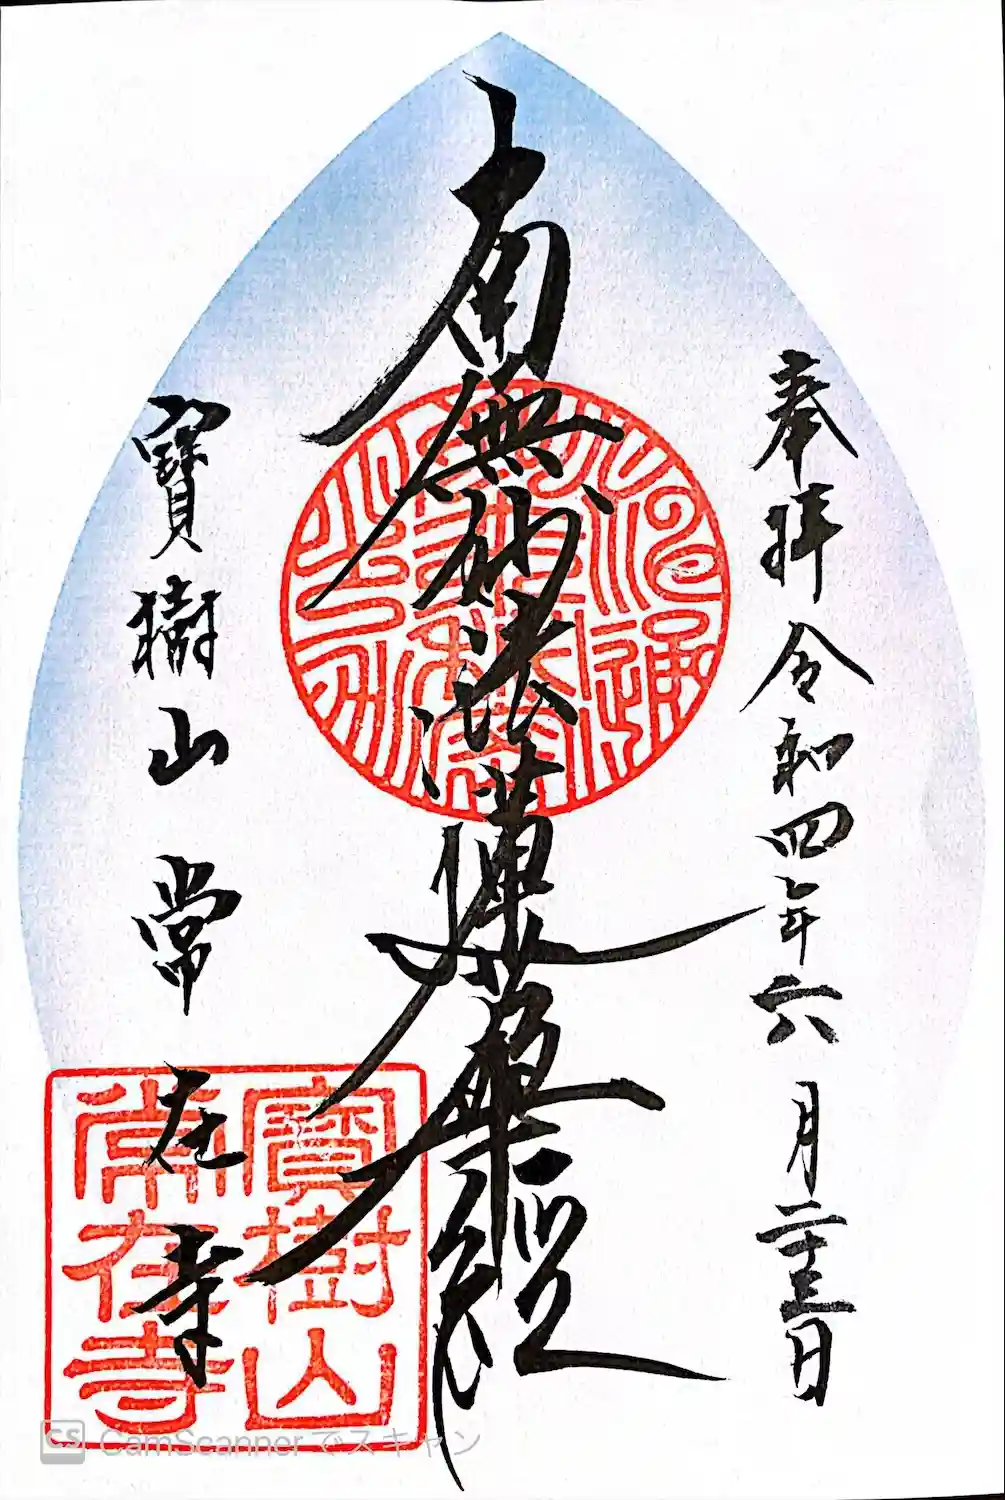 奉拝 令和四年六月二十三日
南無妙法蓮華経
寶樹山 常在寺
寶樹山
常在寺
CS CamScannerでスキャン